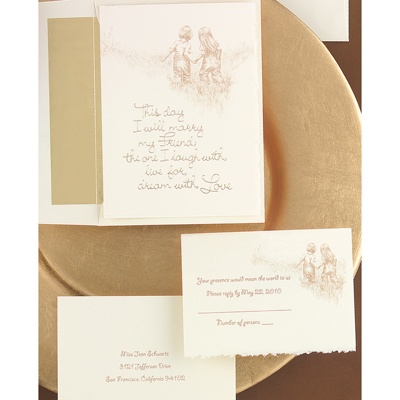 This day
I will marry
my Friend,
the one I laugh with,
live for,
dream with, Love
Your presence would mean the world to us
Please reply by May 22, 2010
Number of persons
Miss Jean Schwartz
3121 Jefferson Drive
San Francisco, California 94112